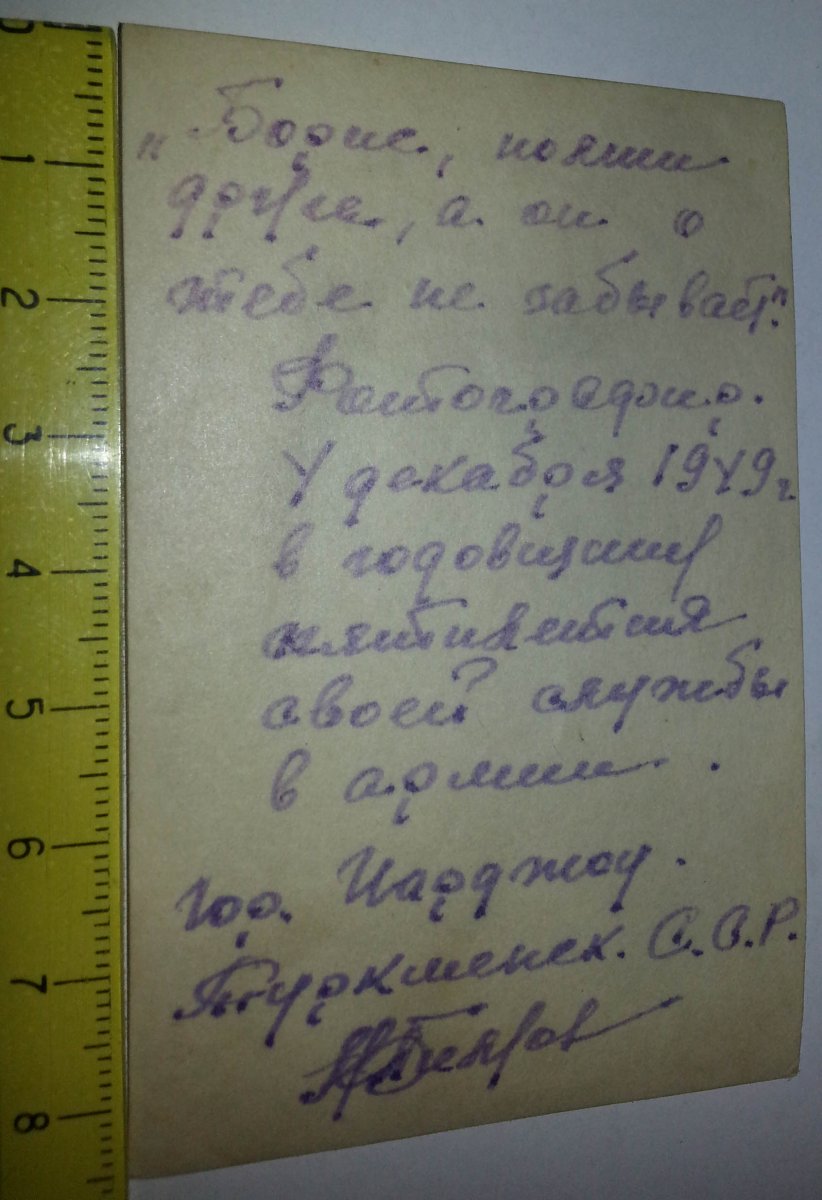 „Борис, помни
друга, а он о
тебе не забывает".
Фотогр
4 декабря 1949 г
в годовщину
пятилетия
своей службы
в армии.
гор. Чарджоу.
Туркменск. С.С.Р.
0
1
2
3
4
5
6
7
8